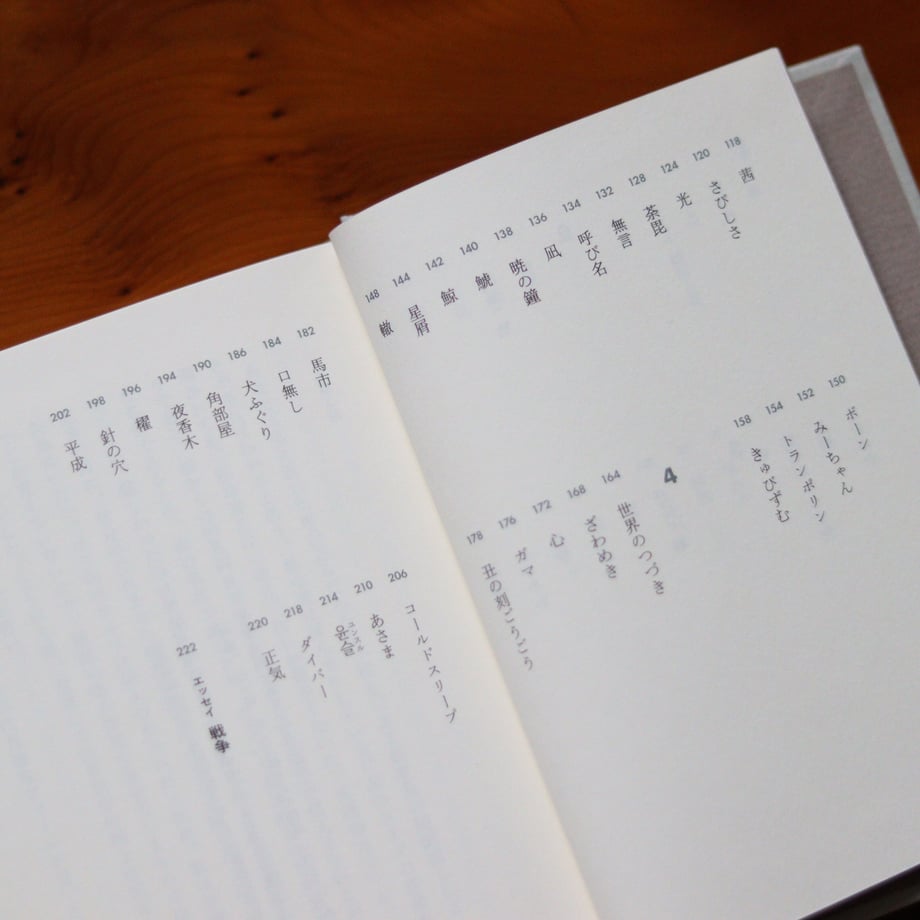 118 茜
120 さびしさ
124 光
128 荼毘
132 無言
134 呼び名
136 凪
138 暁の鐘
140 鯱
142 鯨
144 星屑
148 轍
150 ボーン
152 みーちゃん
154 トランポリン
158 きゅびずむ
4
164 世界のつづき
168 ざわめき
172 心
176 ガマ
178 丑の刻ごうごう
182 馬市
184 口無し
186 犬ふぐり
190 角部屋
194 夜香木
196 櫂
198 針の穴
202 平成
206 コールドスリープ
210 あさま
214 윤슬 ユンスル
218 ダイバー
220 正気
222 エッセイ 戦争